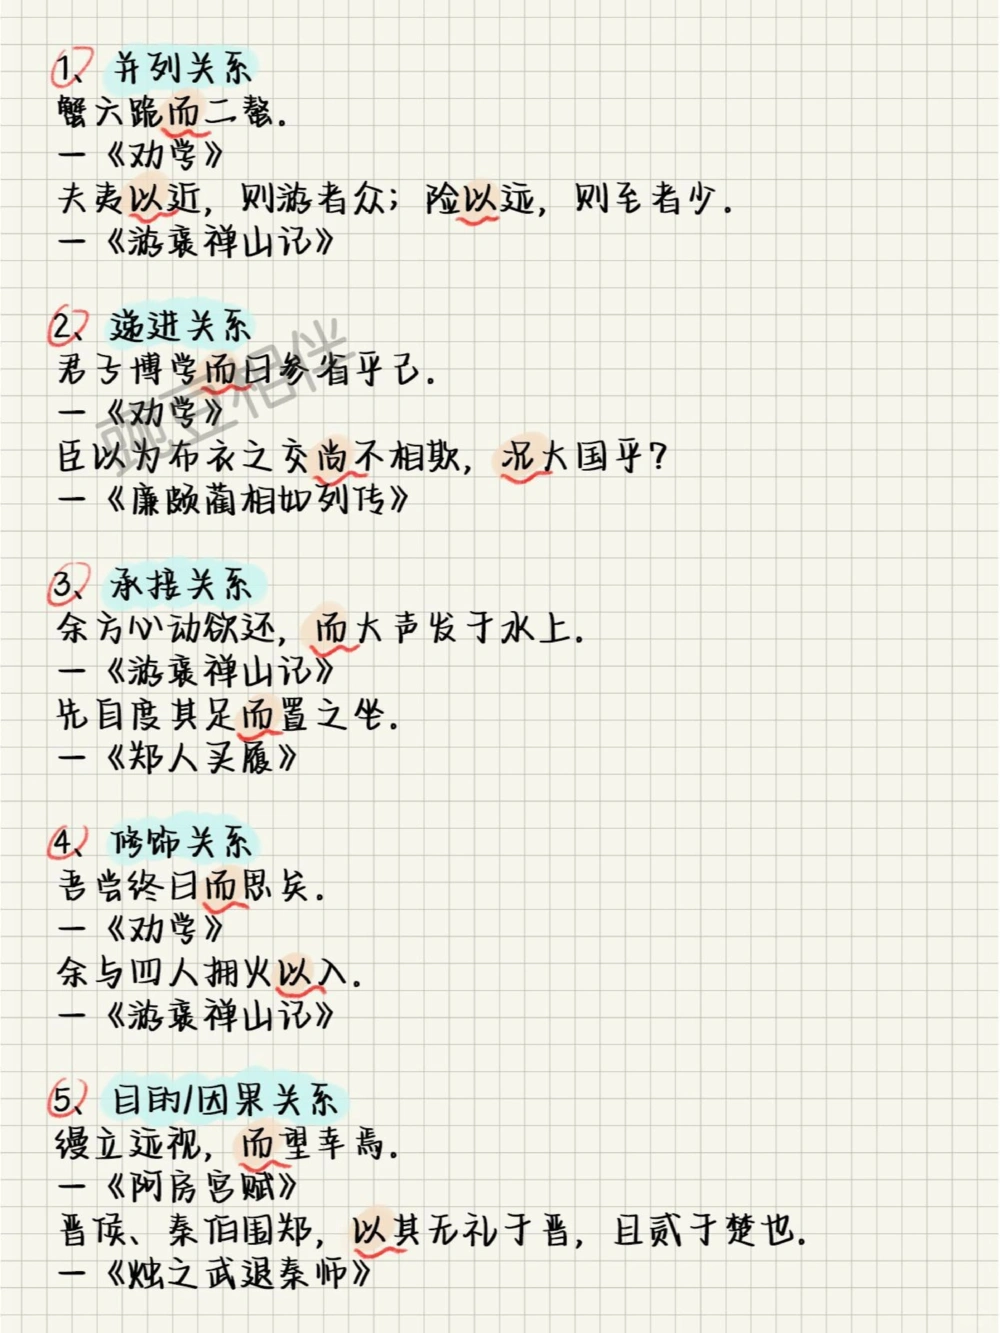 1、并列关系
蟹六跪而二螯.
—《劝学》
夫夷以近，则游者众；险以远，则至者少.
—《游褒禅山记》
2、递进关系
君子博学而日参省乎己.
—《劝学》
臣以为布衣之交尚不相欺，况大国乎？
—《廉颇蔺相如列传》
3、承接关系
余方心动欲还，而大声发于水上.
—《游褒禅山记》
先自度其足而置之坐.
—《郑人买履》
4、修饰关系
吾尝终日而思矣.
—《劝学》
余与四人拥火以入.
—《游褒禅山记》
5、目的/因果关系
缦立远视，而望幸焉.
—《阿房宫赋》
晋侯、秦伯围郑，以其无礼于晋，且贰于楚也.
—《烛之武退秦师》
豌豆相伴